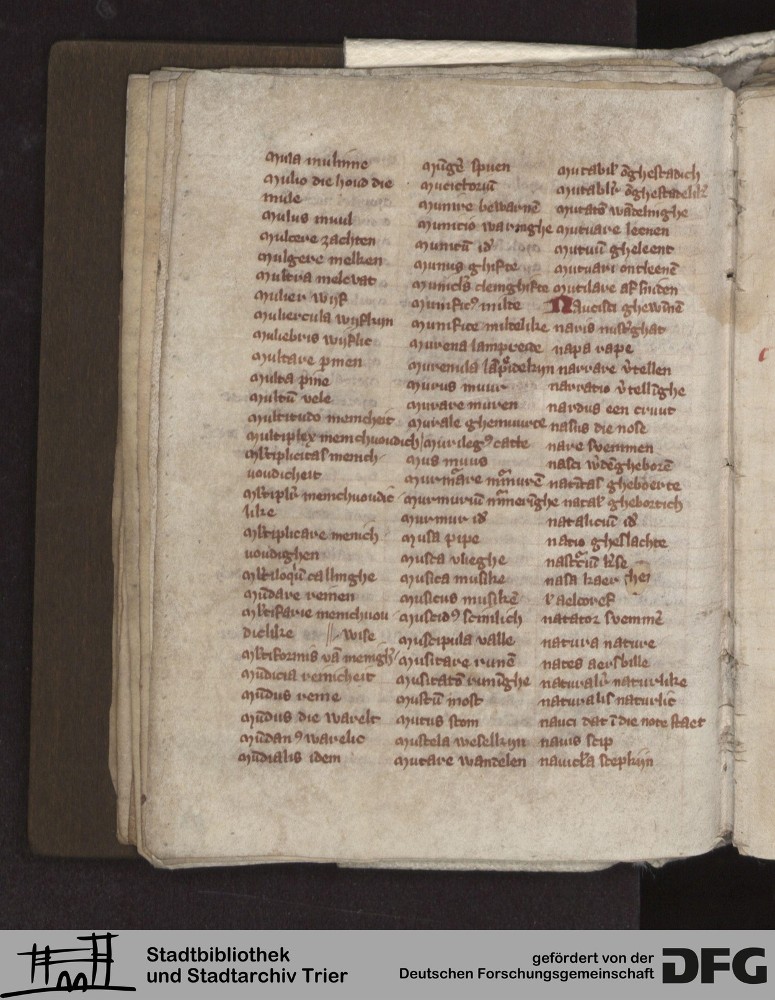 Mula mulinne
Mulio die houd die
mule
Mulus muul
Mulcere zachten
Mulgere melken
Multra melcvat
Mulier wijf
Muliercula wijfkijn
Muliebris wijflic
Multare pinen
Multa pine
Multū vele
Multitudo menicheit
Multiplex menichvoudich
Mltiplicitas menich
voudicheit
Mltiplr menichvoudic
like
Mltiplicare menich
voudighen
Mltiloqū callinghe
Mūdare reinen
Mltifarie menichvou
dielike wise
Mltiformis vā menigh
Mūdicia reinicheit
Mūdus reine
Mūdus die warelt
Mūdanꝰ warelic
Mūdialis idem
Mūgē spuen
Mucictoriū
Munire bewarnē
Municio waringhe
Munitū id
Munus ghifte
Municls cleinghifte
Munificꝰ milte
Munifice miltelike
Murena lampreide
Murenula
Murus muur
Murare muren
Murale ghemuurte
Murilegꝰ catte
Mus muus
Murmare
Murmuriū
Murmur id
Musa pipe
Musca vlieghe
Musica musike
Musicus musikē
Muscidꝰ scimlich
Muscipula valle
Musitare runē
Musitatō runīghe
Mustū most
Mutus stom
Mustela weselkijn
Mutare wandelen
Mutabil ōghestadich
Mutabilr ōghestadelik
Mutatō wādelinghe
Mutuare leenen
Mutuū gheleent
Mutuari ontleenē
Mutilare af sniden
Nancisci ghewīnē
naris nusghat
napa rape
narrare v'tellen
narratio v'tellīghe
nardus een cruut
nasus die nose
nare svemmen
nasci w'dēgheborē
natitas gheboerte
natal ghebortich
nataliciū id
natio gheslachte
nastciū k'se
nasa kaer
kaelcoref
natator svemme
natura nature
nates aersbille
naturalr naturlike
naturalis naturlic
nauci dat ī die note staet
navis scip
navicla scepkijn
Stadtbibliothek
und Stadtarchiv Trier
gefördert von der
Deutschen Forschungsgemeinschaft
DFG